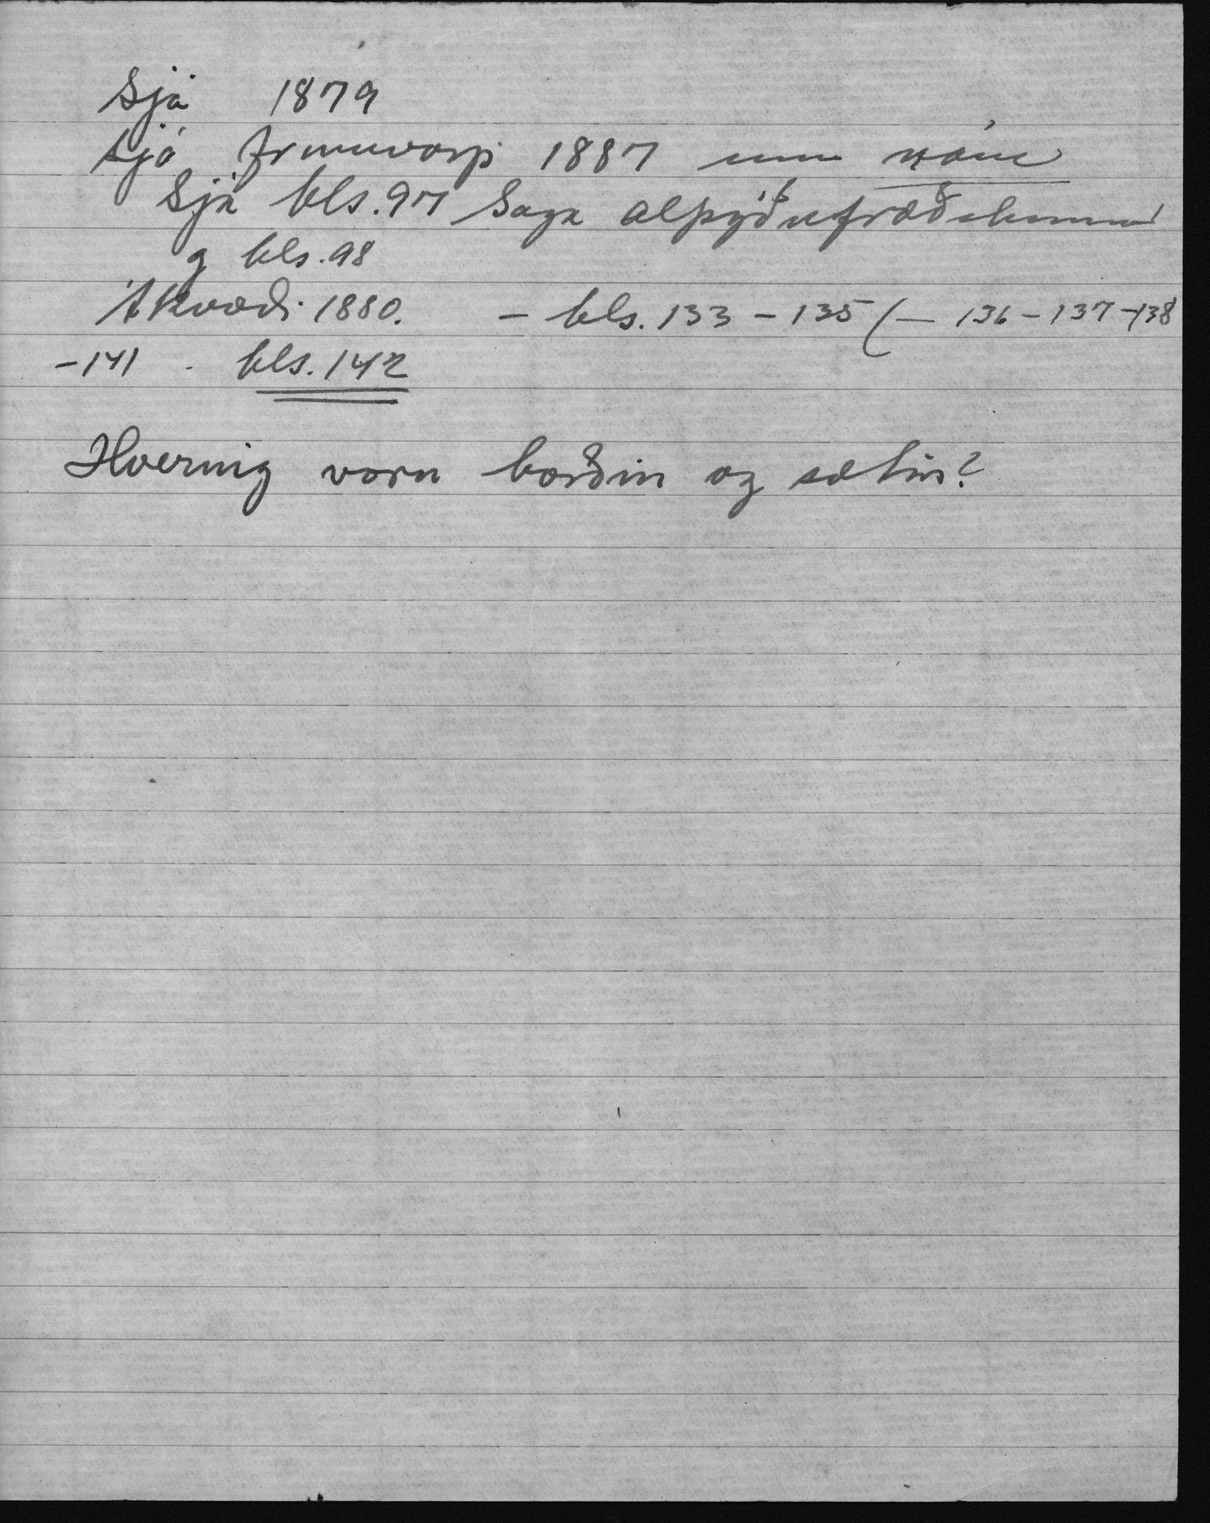 Sjá 1879
sjá frumvarp 1887 um nám
Sjá bls. 97 Saga alþýðufræðslunnar
g bls. 98
Ákvæði 1880. – bls. 133 – 135 (– 136 – 137 – 138
– 141 . bls. 142
Hvernig voru borðin og sætin?